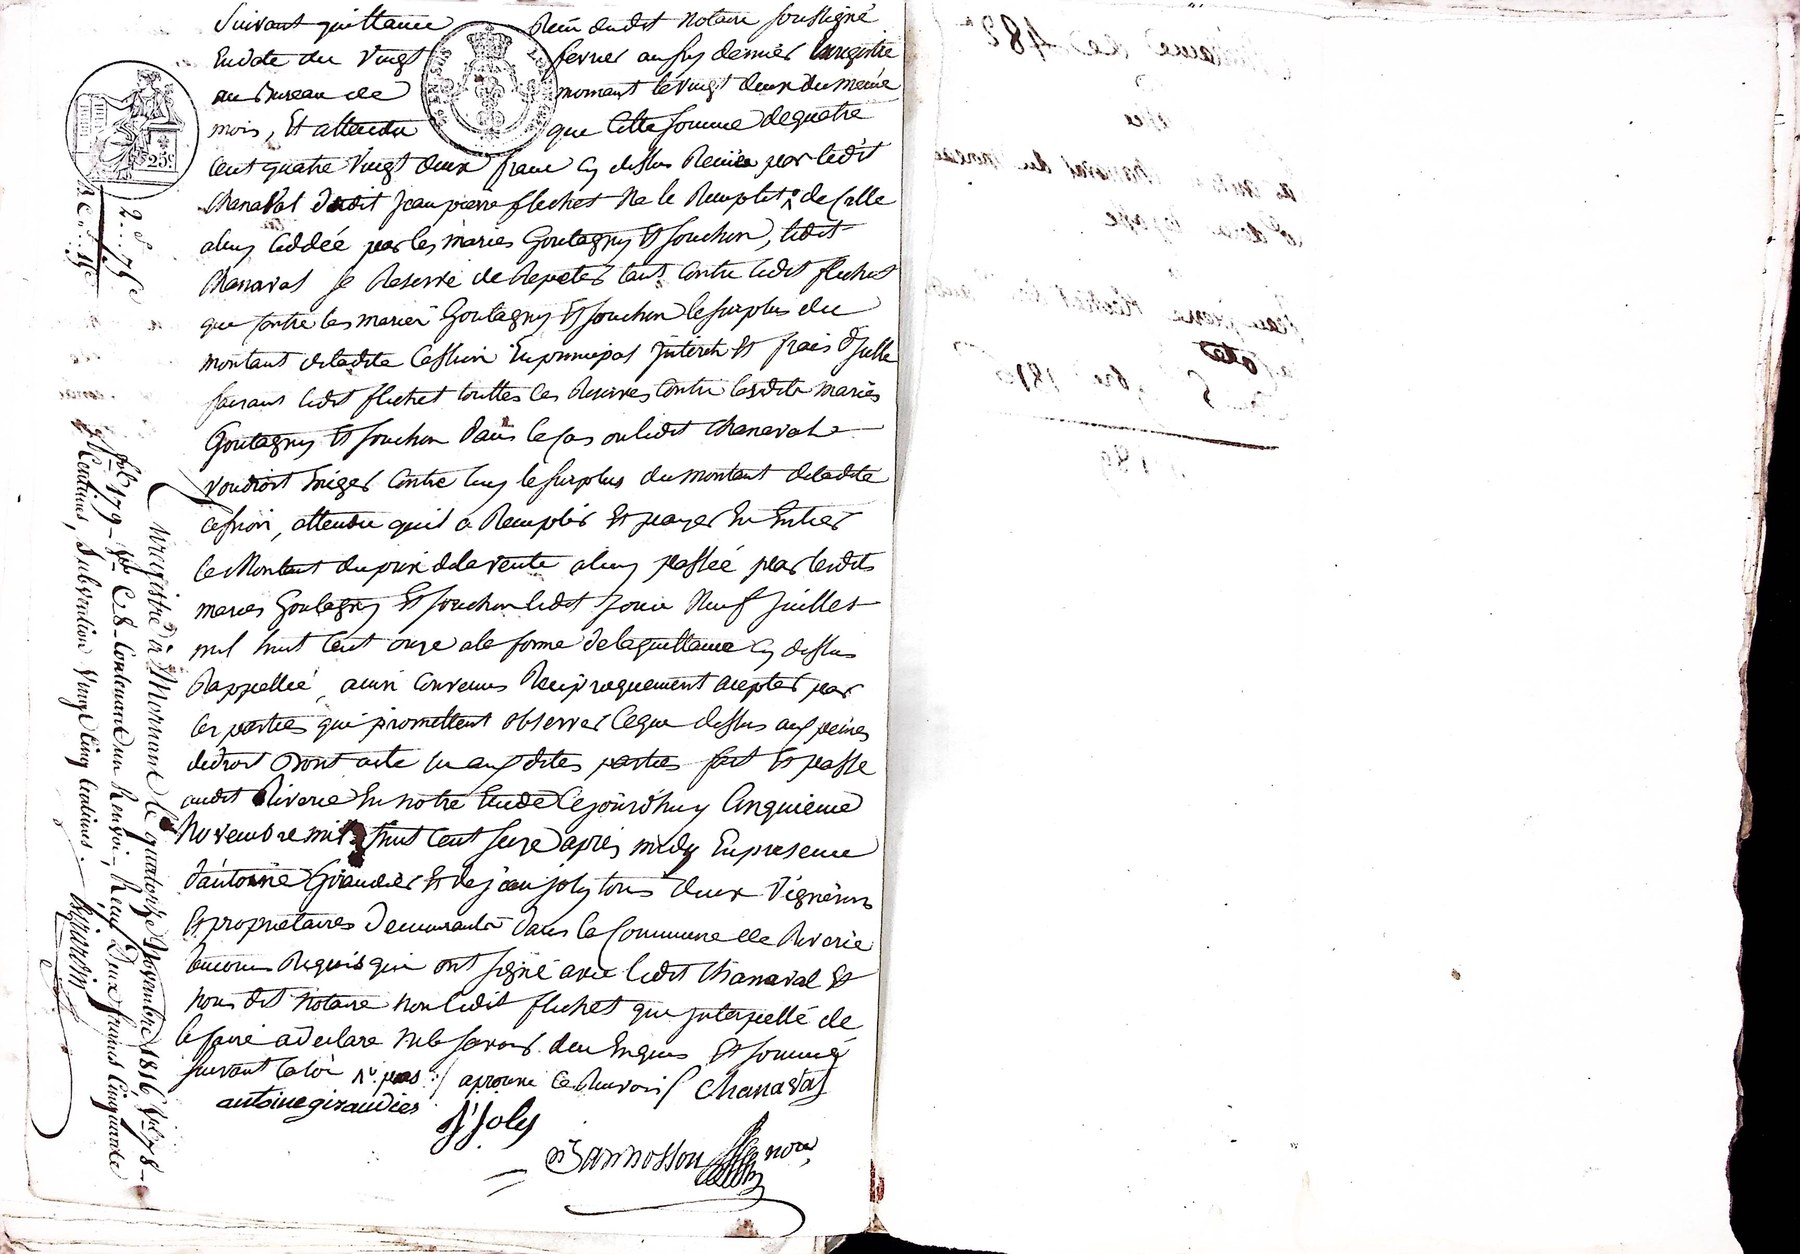 Suivant quittance Reçu dudit notaire soussigné
En date du vingt fevrier aussy dernier Enregistré
au Bureau de mornant le vingt deux du meme
mois, Et attendu que Cette somme de quatre
cent quatre vingt deux franc cy dessus Reçüe par ledit
chanaval dudit Jean pierre flechet Ne le Remplit ^ de Celle
a luy Ceddée par les mariés Goutagny Et souchon, ledit
Chanaval se Reserve de Repeter tant Contre ledit flechet
que Contre les mariés Goutagny Et souchon le surplus du
montant de ladite Cession En principal Interets Et frais d'Jcelle
faisant ledit flechet touttes ces Reserves Contre lesdits mariés
Goutagny Et souchon dans le Cas ou ledit Chanaval
voudroit Exiger Contre luy le surplus du montant de ladite
cession, attendu quil a Remplir Et payer En Entier
le Montant du prix de la vente a luy passée par lesdits
mariés Goutagny Et souchon ledit Jour Neuf Juillet
mil huit Cent onze a la forme de la quittance Cy dessus
Rappellée, ainsi Convenus Reciproquement accepter par
les parties qui promettent observer Ceque dessus aux peines
de droit dont acte lu aux dites parties fait Et passe
audit Riverie En notre Etude Cejourd'huy Cinquieme
Novembre mil huit Cent seize apres midy En presence
d'antoine Giraudier Et de jean joly tous deux vignerons
Et proprietaires demeurants dans la Commune de Riverie
temoins Requis qui ont signé avec ledit Chanaval Et
nous dit Notaire non ledit flechet qui Interpellé de
le faire a declaré Ne le savoir de ce Enquis Et sommé
suivant la loi ^ pas / aprouvé Ce Renvoi / Chanaval
antoine giraudier
J Joly
Jannosson nore
25c
2..75c
Enregistré à Mornant le quatorze Novembre 1816 vol. 78
fol. 179 - Vo C. 8 - Contenant un Renvoi, Reçu Deux francs Cinquante
Centimes, Subvention Vingt Cinq Centimes.